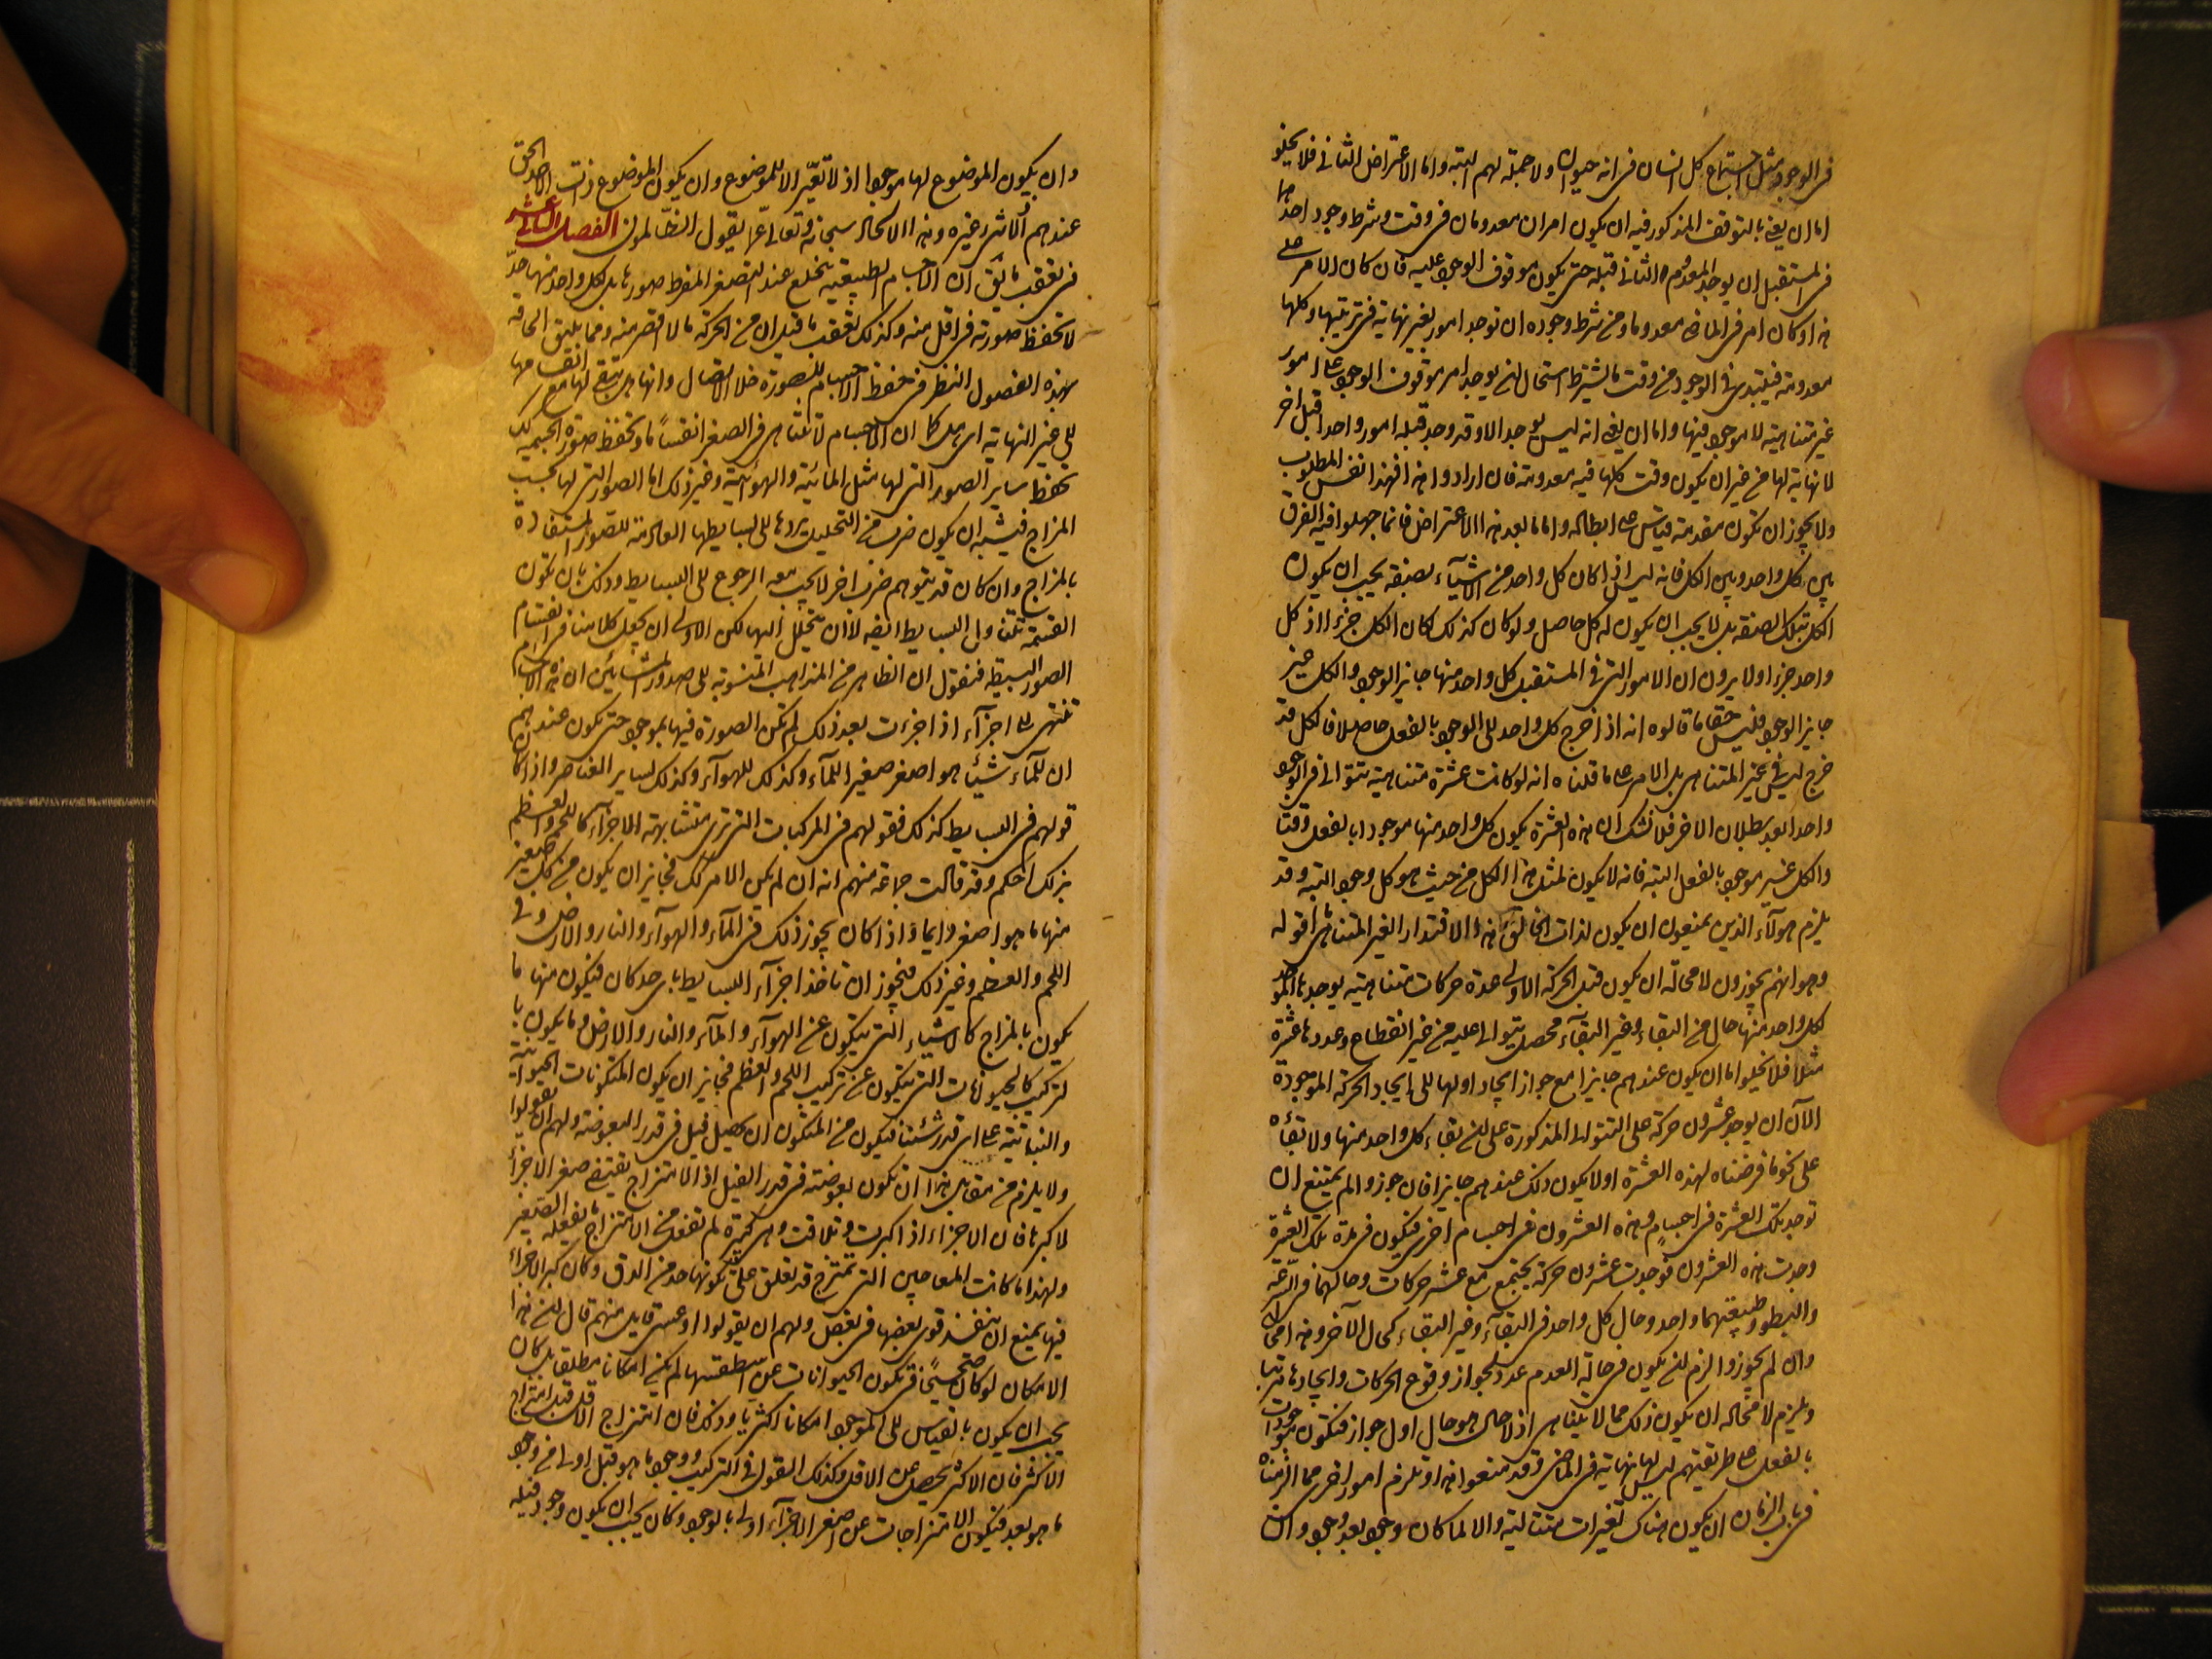 في الوجود مثل اجتماع كل انسان في انه حيوان ولا جملة لهم البتة واما الاعتراض الثاني فلا يخلو
اما ان يعني بالتوقف المذكور فيه ان يكون امران معدومان في وقت وشرط وجود احدهما
في المستقبل ان يوجد المعدوم الثاني قبله حتى يكون موقوف الوجود عليه فان كان الامر على
هذا وكان امر في الماضي معدوما ومن شرط وجوده ان توجد امور بغير نهاية في ترتيبها وكلها
معدومة فيبتدى في الوجود من وقت ما يشترط استحال لن يوجد امر موقوف الوجود على امور
غير متناهية لا موجود فيها واما ان يعني انه ليس يوجد الا وقد وجد قبله امور واحدا قبل اخر
لا نهاية لها من غير ان يكون وقت كلها فيه معدومة فان ارادوا هذا فهذا نفس المطلوب
ولا يجوز ان تكون مقدمة قياس على ابطاله واما ما بعد هذا الاعتراض فانما جهلوا فيه الفرق
بين كل واحد وبين الكل فانه ليس اذا كان كل واحد من الاشياء بصفة يجب ان يكون
الكل بتلك الصفة بل لا يجب ان يكون له كل حاصل ولو كان كذلك لكان الكل جزءا اذ كل
واحد جزء اولا يرون ان الامور التي في المستقبل كل واحد منها جايز الوجود والكل غير
جايز الوجود فليس حقا ما قالوه انه اذا خرج كل واحد الى الوجود بالفعل حاصلا فالكل قد
خرج ليس في غير المتناهي بل الامر على ما قلناه انه لو كانت عشرة متناهية تتوالى في الوجود
واحدا بعد بطلان الاخر فلا نشك ان هذه العشرة يكون كل واحد منها موجودا بالفعل وقتا
والكل غير موجود بالفعل البتة فانه لا يكون لمثل هذا الكل من حيث هو كل وجود البتة وقد
يلزم هولآء الذين يمنعون ان يكون لذات الخالق هذا الاقتدار الغير المتناهي اقوله
وهو انهم يجوزون لا محالة ان يكون قبل الحركة الاولى عدة حركات متناهية يوجدها الموجد
لكل واحد منها حال من البقاء وغير البقآء محصل يتوالى عليه من غير انقطاع وعددها عشرة
مثلا فلا يخلو اما ان يكون عندهم جايزا مع جواز ايجاد اولها الى ايجاد الحركة الموجودة
الآن ان يوجد عشرون حركة على التوالي المذكورة على لن بقاء كل واحد منها ولا بقآئه
على نحو ما فرضناه لهذه العشرة اولا يكون ذلك عندهم جايزا فان جوزوا لم يمتنع ان
توجد تلك العشرة في اجسام وهذه العشرون في اجسام اخرى فيكون في مدة تلك العشرة
وجدت هذه العشرون فوجدت عشرون حركة يجتمع مع عشر حركات وحالهما في السرعة
والبطؤ وطبيعتهما واحد وحال كل واحد في البقآء وغير البقاء كحال الآخر وهذا محال
وان لم يجوزوا لزم لن يكون في حالة العدم عدد لجواز وقوع الحركات وايجادها مرتبا
ويلزم لا محالة ان يكون ذلك مما لا يتناهى اذ لا حال هو حال اول جواز فيكون موجودات
بالفعل على طريقتهم ليس لها نهاية في الماضي وقد منعوا هذا ويلزم امور اخرى مما الزمناه
في باب الزمان ان يكون هناك تغيرات متتالية والا لما كان وجود بعد وجود
وان يكون الموضوع لها موجودا اذ لا تغير الا للموضوع وان يكون الموضوع ذات الاحد الحق
عندهم لا شي وغيره وهذا لا كال سبحانه وتعالى عما يقول الظالمون الفصل الثاني عشر
في تعقب ما يق ان الاجسام الطبيعية يخلع عند التصغر المفرط صورها بل لكل واحد منها حد
لا تحفظ صورته في اقل منه وكذلك تعقب ما قيل ان من الحركة ما لا اقصر منه ومما يليق الحاقه
بهذه الفصول النظر في حفظ الاجسام للصورة خلا الاتصال وانها هل يبقى لها مع انقسامها
الى غير النهاية اي هل كما ان الاجسام لا تتناهى في الصغر انقساما وتحفظ صورة الجسمية كك
تحفظ ساير الصور التي لها مثل المائية والهوائية وغير ذلك اما الصور التي لها بحسب
المزاج فيشبه ان يكون ضرب من التحليل يردها الى بسايطها العادمة للصور المستفادة
بالمزاج وان كان قد يتوهم ضرب اخر لا يجب معه الرجوع الى البسايط وذلك بان تكون
القسمة تتناول البسايط ايضه لا ان تحلل اليها لكن الاولى ان نجعل كلامنا في انقسام
الصور البسيطة فنقول ان الظاهر من المذاهب المنسوبة الى صدور المشائين ان هذه الاجسام
تنتهي الى اجزآء اذا جزءت بعد ذلك لم تكن الصورة فيها بموجودة حتى يكون عندهم
ان للمآء شيئا هو اصغر صغير للمآء وكذلك للهوآء وكذلك لساير العناصر واذا كان
قولهم في البسايط كذلك فقولهم في المركبات التي ترى متشابهة الاجزآء كاللحم والعظم
بذلك احكم وقد قالت جماعة منهم انه ان لم يكن الامر كك فجايز ان يكون من كل صغير
منها ما هو اصغر دايما واذا كان يجوز ذلك في المآء والهوآء والنار والارض وفي
اللحم والعظم وغير ذلك فيجوز ان تاخذ اجزآء البسايط باى حد كان فيكون منها ما
يكون بالمزاج كالاشياء التي يتكون عن الهوآء والمآء والنار والارض وما يكون با
لتركيب كالحيوانات التي يتكون عن تركيب اللحم والعظم فجايز ان يكون المتكونات الحيوانية
والنباتية على اى قدر شئنا فيكون من المتكون ان يحصل فيل في قدر البعوضة ولهم ان يقولوا
ولا يلزم من مقابل هذا ان تكون بعوضة في قدر الفيل اذ الامتزاج يقتضي صغر الاجزآء
لا كبرها فان الاجزاء اذا كبرت وتلاقت وهي كثيرة لم تفعل من الامتزاج ما يفعله الصغير
ولهذا ما كانت المعاجين التي تمتزج قد تعلق على كونها حد من الدق وكان كبر الاجزاء
فيها يمنع ان ينفذ قوى بعضها في بعض ولهم ان يقولوا او عسى قايل منهم قال لن هذا
الامكان لو كان صحيحا في تكون الحيوانات عن اسطقسها لم يكن امكانا مطلقا بل كان
يجب ان يكون بالقياس الى الموجود امكانا اكثريا وذلك فان امتزاج الاقل قبل امتزاج
الاكثر فان الاكثر يحصل عن الاقل وكذلك القول في التركيب ووجود ما هو قبل اولى من وجود
ما هو بعد فيكون الامتزاجات عن اصغر الاجزآء اولى بالوجود وكان يجب ان يكون وجود فيله